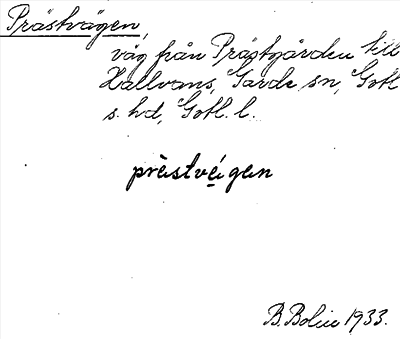 Prästvägen,
väg från Prästgården till
Hallvans, Garde sn, Gotl.
s. hd, Gotl. l.
prèstvéigen
B. Bolin 1933.